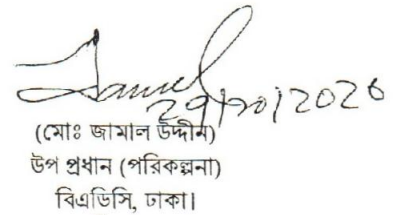 29/10/2020
(মোঃ জামাল উদ্দীন)
উপ প্রধান (পরিকল্পনা)
বিএডিসি, ঢাকা।